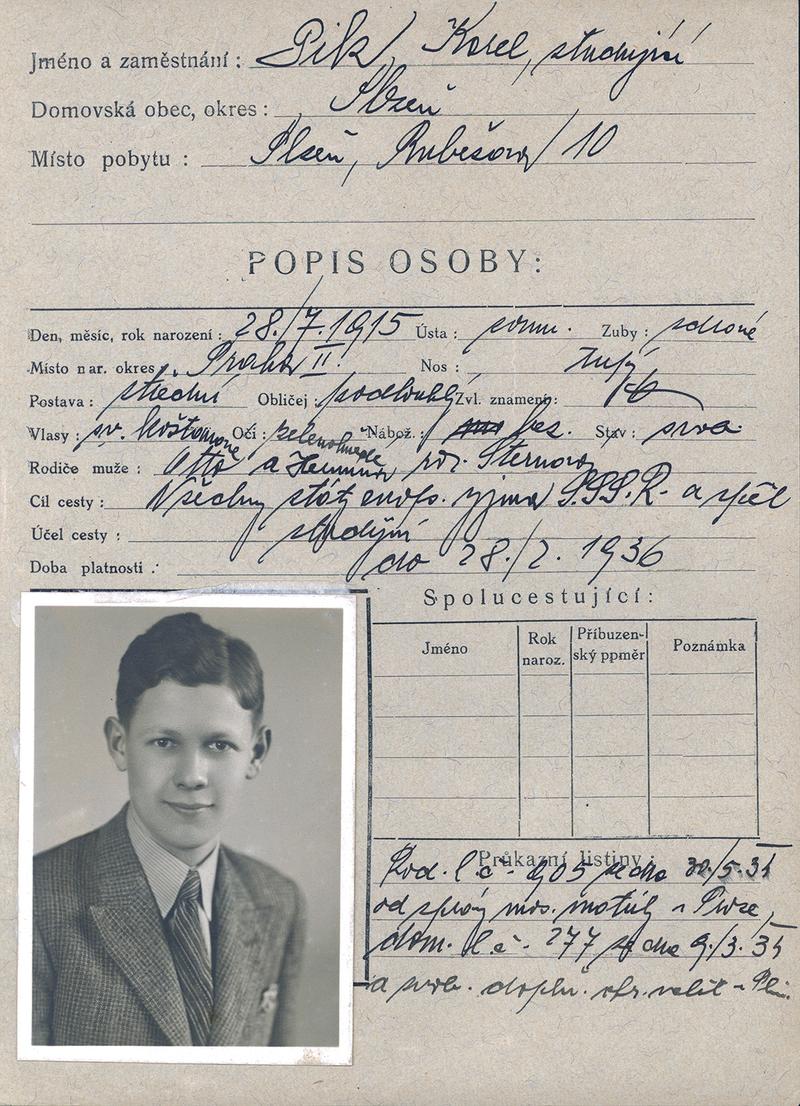 Jméno a zaměstnání : Pik Karel, studující
Domovská obec, okres : Plzeň
Místo pobytu : Plzeň, Rubešova 10
POPIS OSOBY:
Den, měsíc, rok narození : 28./7. 1915 Ústa : soum. Zuby : zdravé
Místo nar. okres Praha II. Nos : tupý
Postava : střední Obličej : podlouhlý Zvl. znamení :
Vlasy : sv. kaštanové Oči : zelenohnědé Nábož. : bez. Stav : svob.
Rodiče muže : Otto a roz. Sternova
Cíl cesty : Všechny státy evrop. vyjma S.S.S.R. a zpět
Účel cesty : studijní
Doba platnosti : do 28./2. 1936
Spolucestující :
Jméno Rok naroz. Příbuzen-ský ppměr Poznámka
Průkazní listiny :
Rod. l. č. ze dne 30./5. 31
od správy v Praze,
dom. l. č. 277 ze dne 9./3. 35
a doplň.